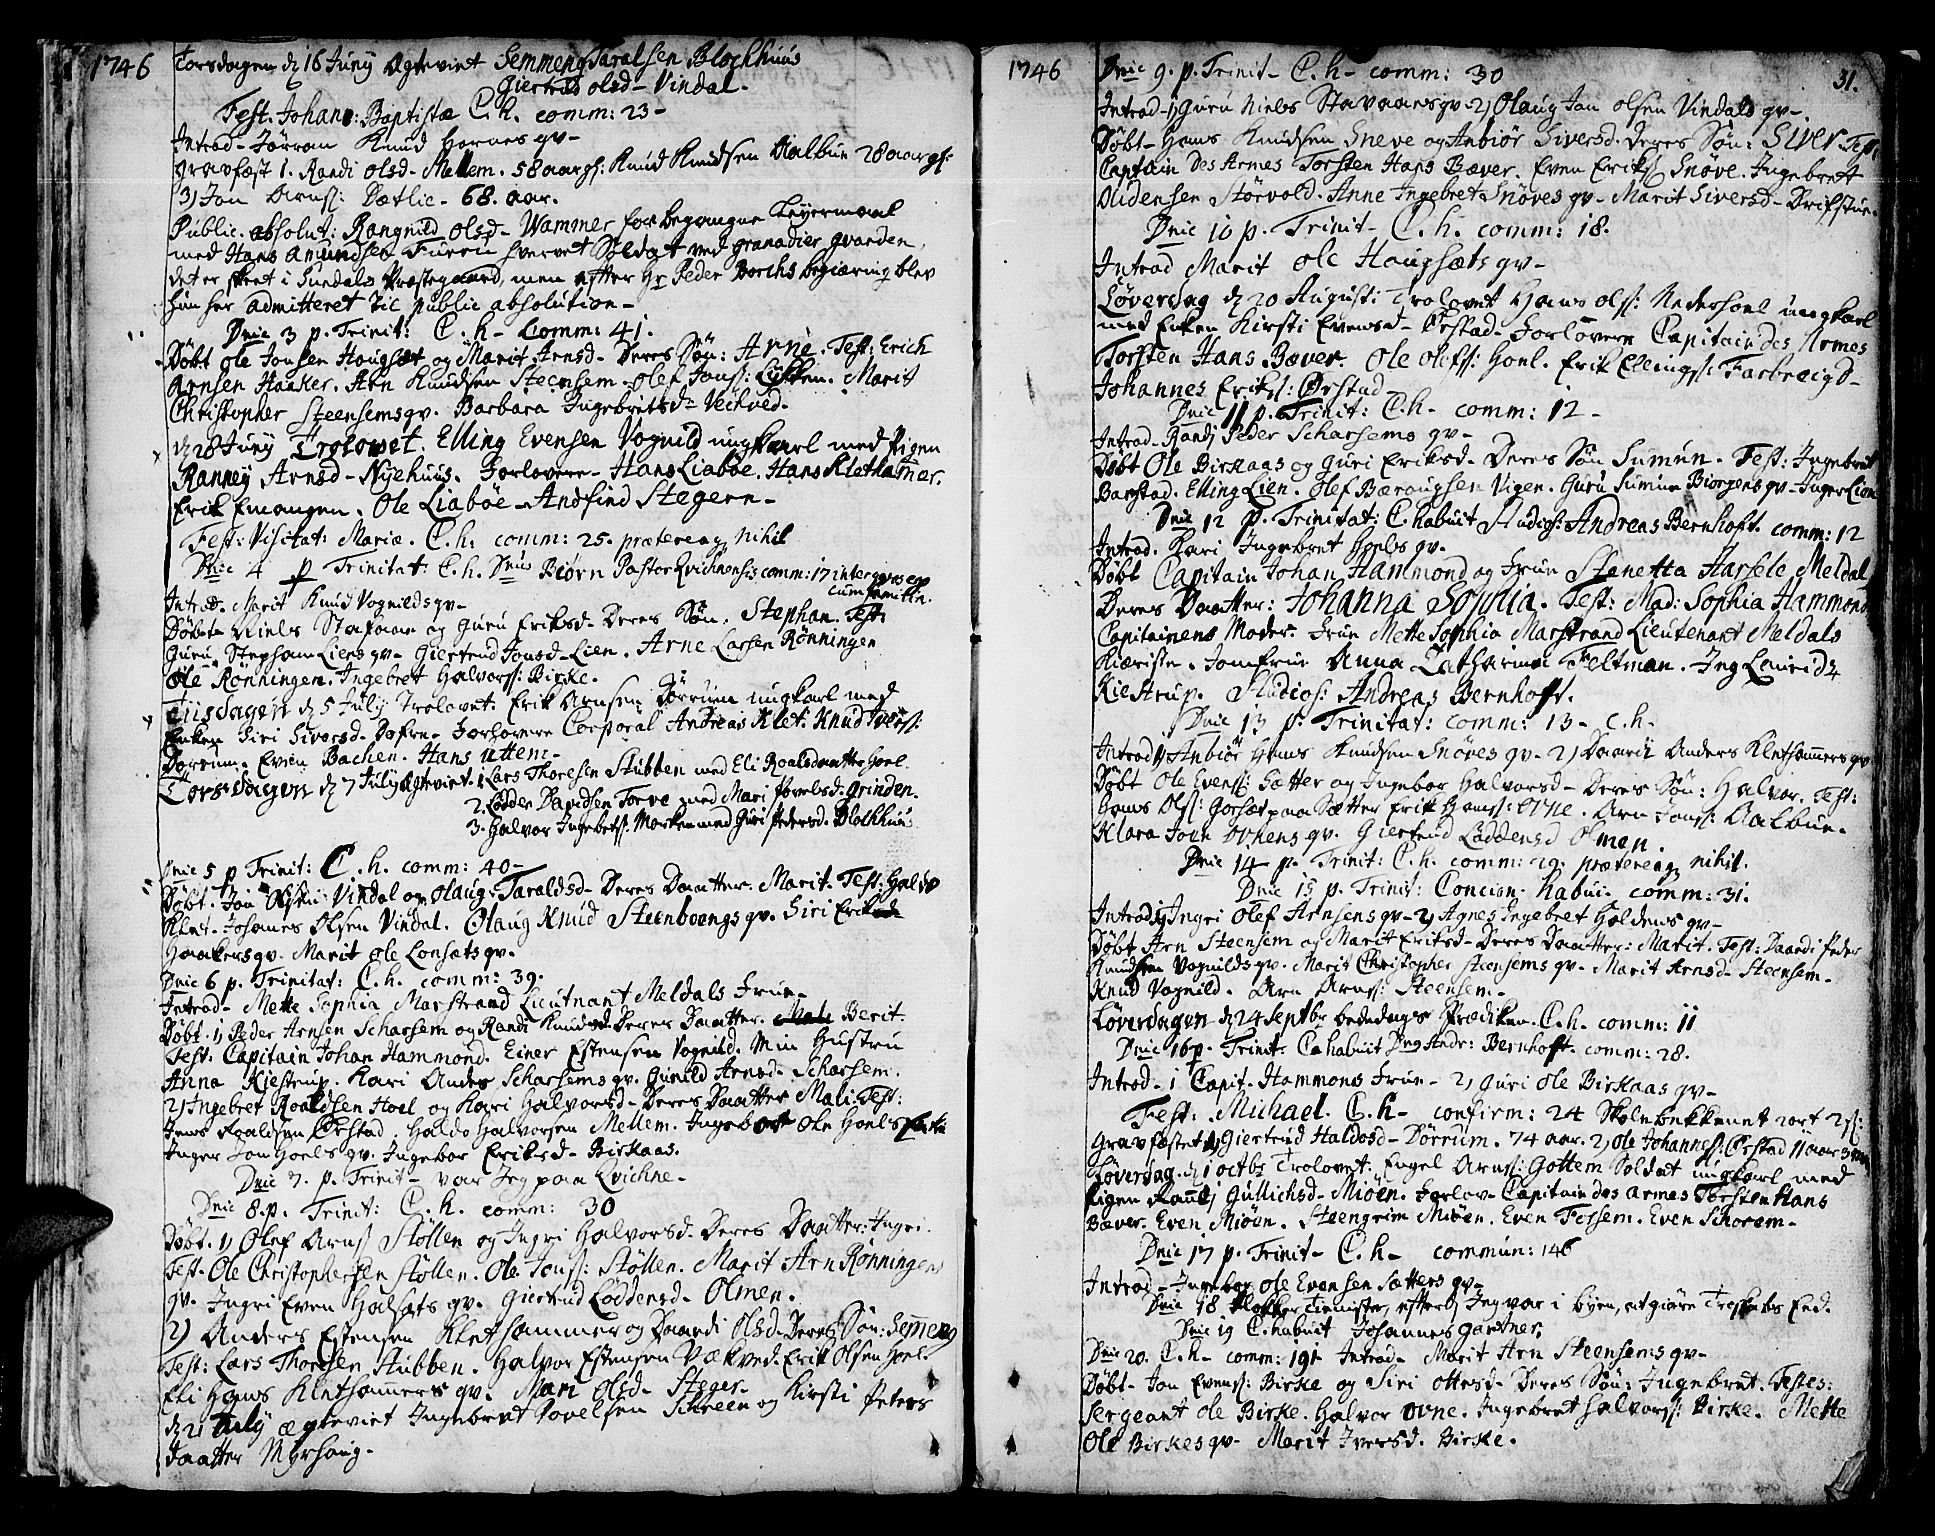 1746
Torsdagen d 16 Juny Ægteviet Semmeng Taralsen Blochhuus
Giertrud olsd- Vindal.
Fest. Johan: Baptistæ C. h. comm: 23-
Introd- Jørran Knud Hornes qv-
Gravfæst 1. Randi olsd- Mellem. 58 aar gl: Knud Knudsen Aalbue 28 aar gl:
3) Jon Arns: Dætlie- 68. aar.
Public. absolut: Rangnild olsd- Wammer for begangne Leyermaal
med Hans Amundsen Furru hvervet Soldat ved granadier gvarden,
det er skeet i Sundals Præstegaard, men efter Hr Peder Borchs begiæring blev
hun her admitteret til public absolution-
Dnic 3 p. Trinit: C. h- Comm: 41.
Døbt ole Jonsen Hougsæt og Marit Arnsd- Deres Søn: Arne. Test: Erich
Arnsen Haaker. Arn Knudsen Steensem. olef Jons: Lykken. Marit
Christopher Steensems qv. Barbara Ingebritsd- Veckved.
d 28 Juny Trolovet. Elling Evensen Vognild ungkarl med Pigen
Ranney Arnsd- Nyehuus. Forlovere- Hans Liabøe. Hans Kletham̅er.
Erik Emangen. Ole Liabøe- Andfind Stegern-
Fest: Visitat: Mariæ. C. h. comm: 25. prætereaq nihil
Dnic 4 p Trinitat: C. h. Dnus Biørn Pastor Qvichnensis comm: 17 inter qvos ego
cum familia.
Introd- Marit Knud Vognilds qv-
Døbt- Niels Stafaan og Guru Eriksd- Deres Søn. Stephan. Test:
Guru Stephan Liens qv- Giertrud Jonsd- Lien. Arne Larsen Rønningen
Ole Rønningen. Ingebret Halvors: Birke.
Tiisdagen d 5 July Trolovet: Erik Arnsen Dørrum ungkarl med
Enken Siri Siversd- Dofre- Forlovere Corporal Andreas Klet: Knud Ivers:
Dørrum. Even Bachen. Hans Uttem-
Torsdagen d 7 July ægteviet. 1. Lars Thoresen Stubben med Eli Roalsdaatter Hoel.
2. Lodden Davidsen Torve med Mari Povelsd- Grinden.
3. Halvor Ingebrets: Morken med Guri Pedersd. Blochhuus
Dnic 5 p Trinit: C. h. comm: 40-
Døbt. Jon Vindal og Olaug Taraldsd- Deres Daatter. Marit. Test: Haldo
Klet- Johannes Olsen Vindal. Olaug Knud Steenboengs qv. Siri Erik
Haakers qv. Marit ole Lonsæts qv.
Dnic 6 p. Trinitat: C. h. comm: 39.
Introd- Mette Sophia Marstrand Lieutnant Meldals Frue-
Døbt. 1) Peder Arnsen Scharsem og Randi Knudsd- Deres Daatter. Berit.
Test: Capitain Johan Hammond. Einer Estensen Vognild. Min Hustru
Anna Kjestrup. Kari Anders Scharsems qv. Gunild Arnsd- Scharsem.
2) Ingebret Roaldsen Hoel og Kari Halvorsd- Deres Daatter Mali. Test:
Jens Roaldsen Ørstad. Haldo Halvorsen Mellem. Ingebor Ole Hoels
Inger Jon Hoels qv. Ingebor Eriksd- Birkaas.
Dnic 7. p. Trinit- var Jeg paa Qvichne-
Dnic 8. p. Trinit: C. h. comm: 30
Døbt. 1) Olef Arns Støllen og Ingri Halvorsd- Deres Daatter: Ingri.
Test- Ole Christophersen Støllen. Ole Jons: Støllen. Marit Arn Rønningens
qv. Ingri Even Halsæts qv. Giertrud Loddensd- Olmen.
2) Anders Estensen Kletham̅er og Daardi Olsd- Deres Søn: Semeng
Test: Lars Thoresen Stubben. Halvor Estensen Vækved. Erik Olsen Hoel.
Eli Hans Klethamers qv. Mari Olsd- Steger.
d 21 July ægteviet Ingebret Povelsen Sureen og Kirsti Peters
Daatter Myrhaug-
1746
31.
Dnic 9. p. Trinit- C. h- comm: 30
Introd- 1) Guru Niels Stavaans qv- 2) Olaug Jon olsen Vindals qv-
Døbt- Hans Knudsen Sneve og Anbiør Siversd- Deres Søn: Siver Test:
Captain Des Armes Torsten Hans Bæver. Even Eriks Snøve. Ingebrett
Audensen Størvold. Anne Ingebret Snøves qv- Marit Siversd- Drifstue.
Dnic 10 p. Trinit- C. h. comm: 18.
Introd Marit ole Hougsæts qv-
Løverdag d 20 August: Trolovet Hans ols: Nederhoel ungkarl
med Enken Kirsti Evensd- Ørstad- Forlovere Capitain des Armes
Torsten Hans Bæver. Ole Olefs: Hoel. Erik Ellings: Farbreigd-
Johannes Eriks: Ørstad
Dnic 11 p. Trinit: C. h- comm: 12-
Introd- Randj Peder Scharsems qv-
Døbt Ole Birkaas og Guri Eriksd- Deres Søn Sumun. Test: Ingebret
Barstad. Elling Lien. Olef Bæraugsen Vigen. Guru Sumun Biørgens qv- Inger Lien
Dnic 12 p. Trinitat: C. habuit Studios: Andreas Bernhoft. comm: 12
Introd. Kari Ingebret Hoels qv.
Døbt Capitain Johan Hammond og Frue Stenetta Aarsele Meldal
Deres Daatter: Johanna Sophia. Test: Mad: Sophia Hammond
Capitainens Moder. Frue Mette Sophia Marstrand Lieutenant Meldals
Kiæriste. Jomfrue Anna Catharina Feltman. Jeg Lauridz
Kiestrup. Studios: Andreas Bernhoft.
Dnic 13 p. Trinitat: comm: 13- C. h-
Introd 1) Anbiør Hans Knudsen Snøves qv- 2) Daardi Anders Klethamers qv
Døbt Ole Evens: Sætter og Ingebor Halvorsd- Deres Søn: Halvor. Test:
Hans Ols: Gorsæt paa Sætter Erik Hans: Orne. Arn Jons: Aalbue.
Klara Joen Orkens qv. Giertrud Loddensd Olmen.
Dnic 14 p. Trinit: C. h. comm: 29. prætereaq nihil.
Dnic 15 p. Trinit: Concion. habui. comm: 31.
Introd 1) Ingri Olef Arnsens qv- 2) Agnes Ingebret Holdens qv-
Døbt Arn Steensem og Marit Eriksd- Deres Daatter: Marit. Test: Daardi Peder
Knudsen Vognilds qv. Marit Christopher Steensems qv- Marit Arnsd- Steensem-
Knud Vognild. Arn Arns: Steensem-
Løverdagen d 24 Septbr bededags Prædiken. C. h. comm: 11
Dnic 16 p. Trinit: C. habuit Dns Andr: Bernhoft. comm: 28.
Introd- 1 Capit- Hammons Frue- 2) Guri Ole Birkaas qv-
Fest: Michael. C. h- confirm: 24 Skolebekkenet 2 ort 2 s:
Gravfæstet 1) Giertrud Haldosd- Dørrum. 74 aar. 2) Ole Johannes: Ørstad 11 aar
Løverdag. d 1 octbr Trolovet: Engel Arns: Gottem Soldat ungkarl med
Pigen Rannj Gullichsd- Miøen. Forlov- Capitain des armes Torsten Hans
Bæver. Even Miøen. Steengrim Miøen. Even Fessem. Even Schorem-
Dnic 17 p. Trinit- C. h- commun: 146
Introd- Ingebor Ole Evensen Sætters qv-
Dnic 18 Klokker Tieniste, efters Jeg var i byen, at giøre Troskabs Eed.
Dnic 19 C. habuit Johannes Gartner.
Dnic 20. C. h- comm: 191- Introd- Marit Arn Steensems qv-
Døbt- Jon Evens: Birke og Siri Ottesd- Deres Søn: Ingebret. Testes:
Sergeant Ole Birke. Halvor Orne. Ingebret Halvors: Birke. Mette
Ole Birkes qv- Marit Iversd. Birke.